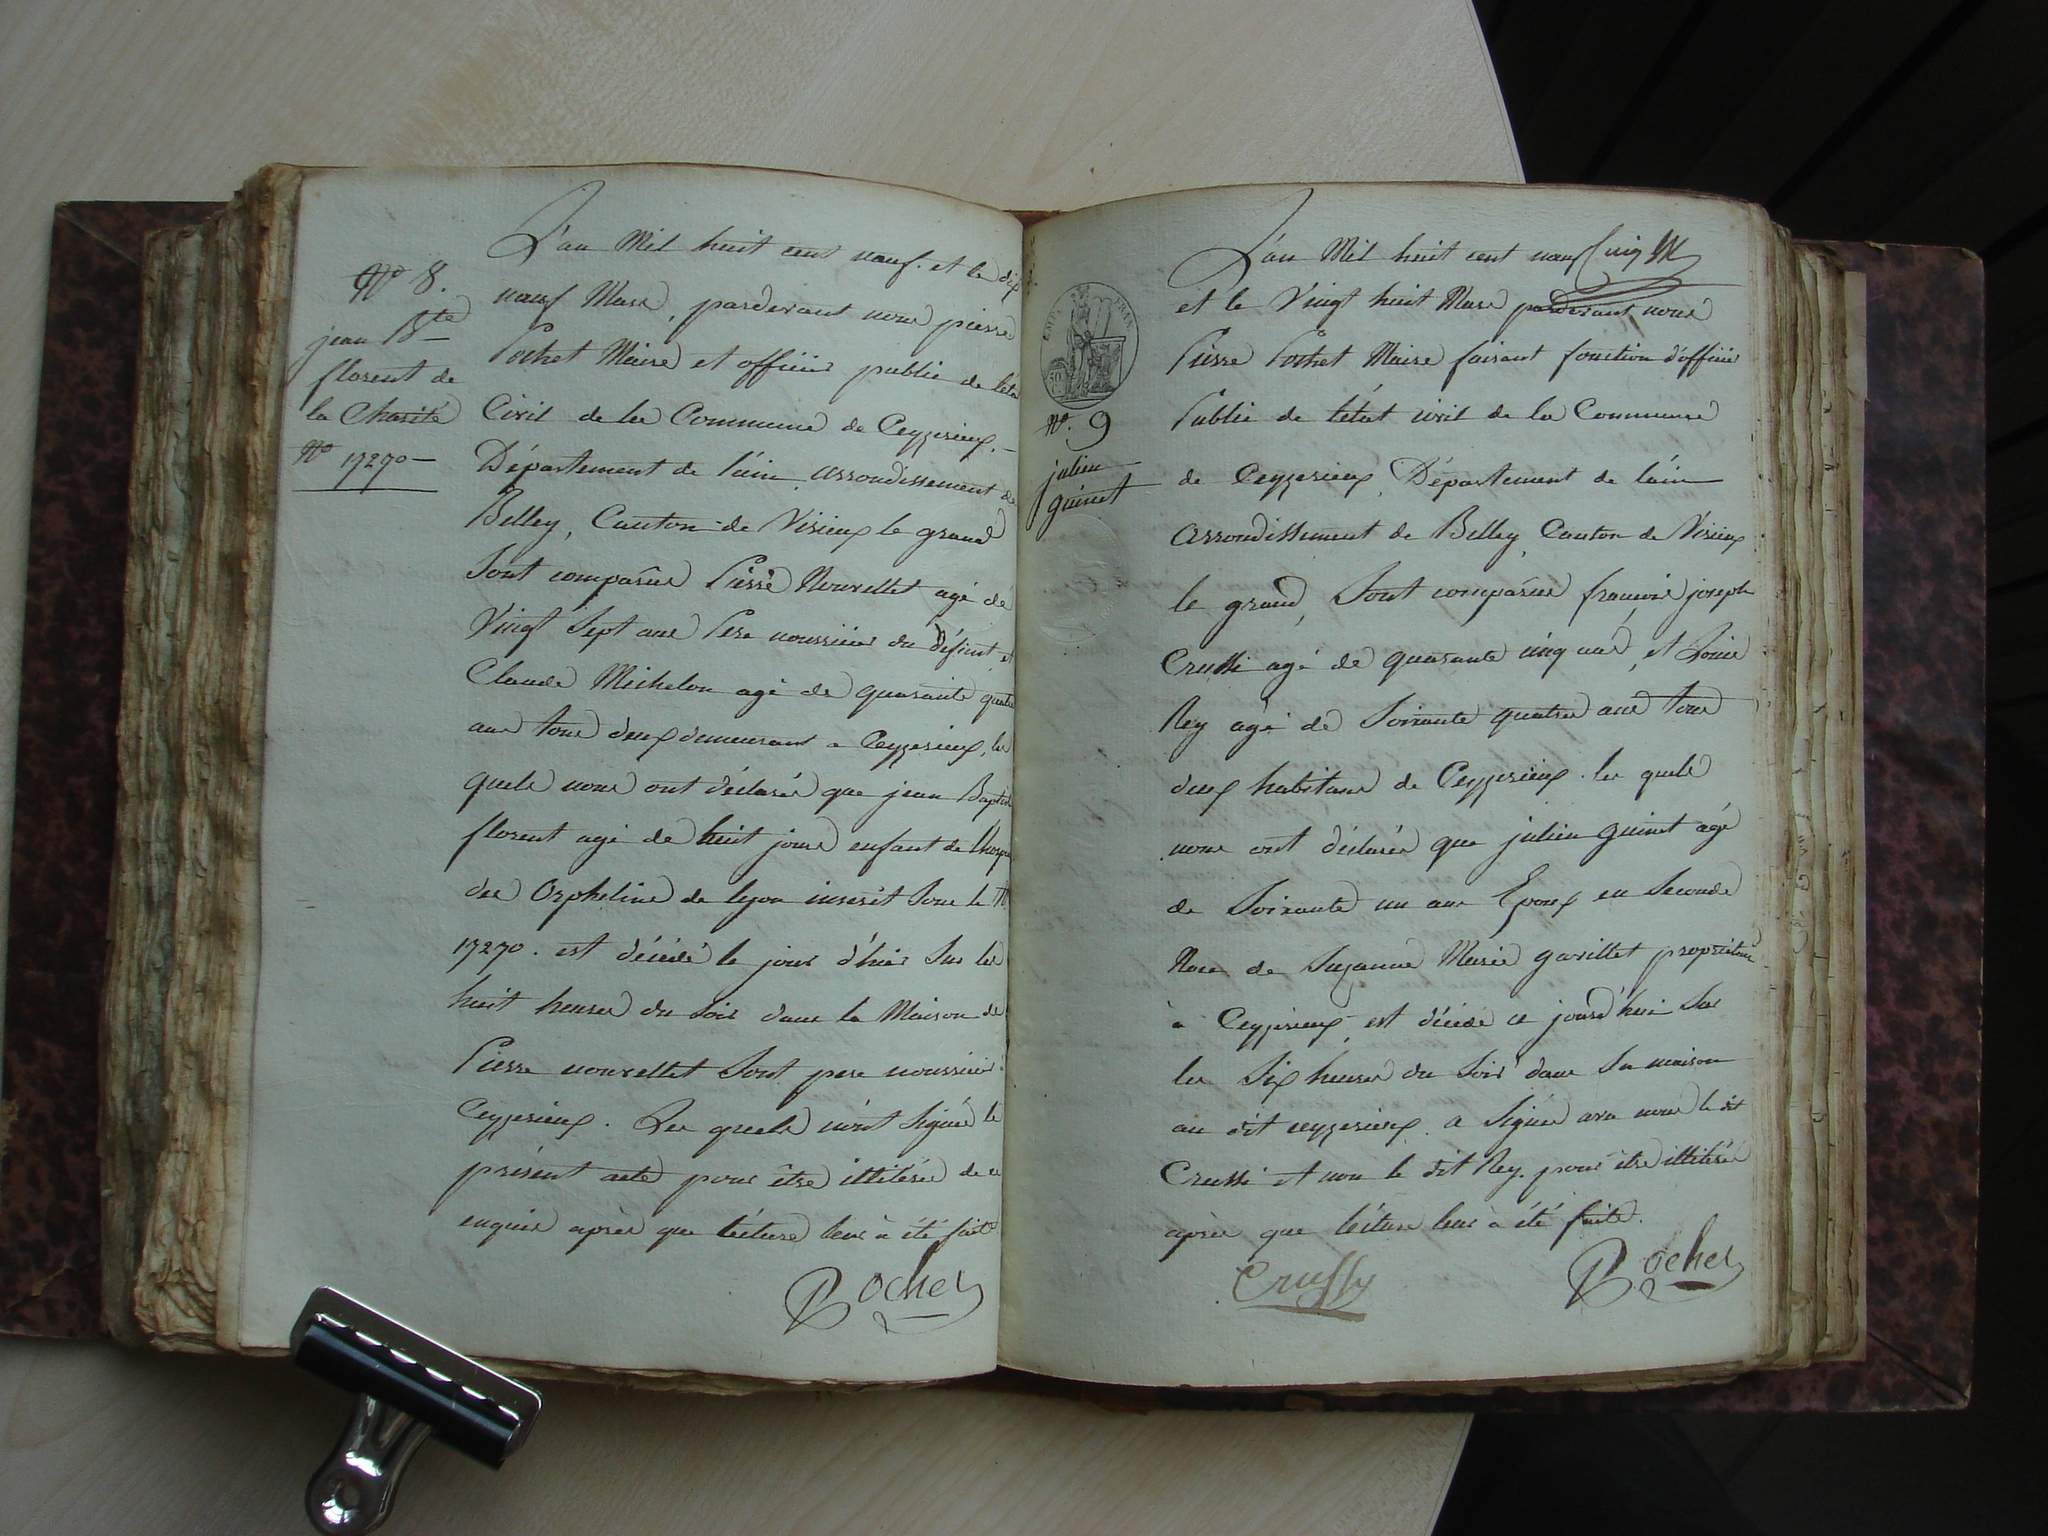 N° 8.
jean Bte
florent de
la Charité
N° 17270 —
L'an Mil huit cent neuf. et le dix
neuf Mars, pardevant nous pierre
Pochet Maire et officier public de l'eta
Civil de la Commune de Ceyzerieux. —
Département de l'ain, arrondissement de
Belley, Canton de Virieux le grand
Sont comparûs Pierre Nouvellet agé de
Vingt Sept ans Pere nourricier du défunt, et
Claude Michelon agé de quarante quatre
ans tous deux demeurant a Ceyzerieux, les
quels nous ont déclarés que jean Baptiste
florent agé de huit jours enfant de l'hospice
des Orphelins de lyon inscrit Sous le N°
17270. est décédé le jour d'hier Sur les
huit heures du Soir dans la Maison de
Pierre nouvellet Sont pere nourricier
Ceyzerieux. Les quels n'ont Signés le
présent acte pour être illitérés de ce
enquis après que lécture leur à été faite
Pochet
EMP. FRAN.
50 C.
N°. 9
julien
guinet
L'an Mil huit cent neuf
et le Vingt huit Mars pardevant nous
Pierre Pochet Maire faisant fonction d'officier
Public de l'état civil de la Commune
de Ceyzerieux, Département de l'ain
arrondissement de Belley, Canton de Virieux
le grand, Sont comparûs françois joseph
Crussi agé de quarante cinq ans, et Louis
Rey agé de Soixante quatre ans tous
deux habitans de Ceyzerieux. les quels
nous ont déclarés que julien guinet agé
de Soixante un ans Epoux en Seconde
Noce de Suzanne Marie gavillet propriétaire
à Ceyzerieux, est décédé ce jourd'hui Sur
les Six heures du Soir dans Sa maison
au dit ceyzerieux. a Signé avec nous le dit
Crussi et non le dit Rey. pour être illitéré
après que lécture leur à été faite.
Crussy
Pochet